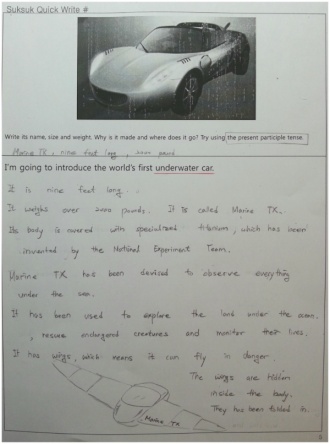 Suksuk Quick Write #
Write its name, size and weight. Why is it made and where does it go? Try using the present participle tense.
Marine TX, nine feet long, 2000 pound
I'm going to introduce the world's first underwater car.
It is nine feet long.
It weighs over 2000 pounds. It is called Marine TX.
Its body is covered with specialized titanium, which has been
invented by the National Experiment Team.
Marine TX has been devised to observe everything
under the sea.
It has been used to explore the land under the ocean
, rescue endangered creatures and monitor their lives.
It has wings, which means it can fly in danger.
The wings are hidden
inside the body.
They has been folded in.
Marine TX